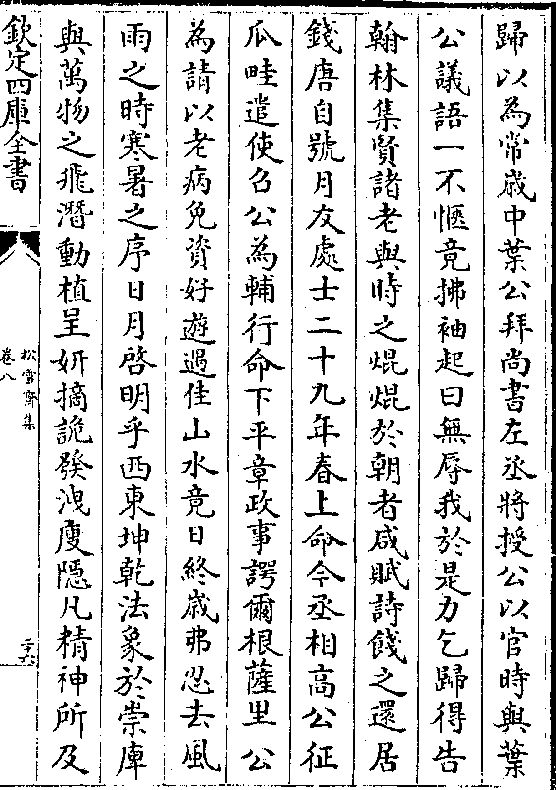 歸以為常歲中葉公拜尚書左丞將授公以官時與葉
公議語一不愜竟拂袖起曰無辱我於是力乞歸得告
翰林集賢諸老與時之焜焜於朝者咸賦詩餞之還居
錢唐自號月友處士二十九年春上命今丞相高公征
瓜畦遣使召公為輔行命下平章政事諤爾根薩里公
為請以老病免資好遊遇佳山水竟日終歲弗忍去風
雨之時寒暑之序日月啓明乎西東坤乾法象於崇庳
與萬物之飛潛動植呈妍摘詭發洩廋隱凡精神所及
欽定四庫全書
松雪齋集
卷八
二十六